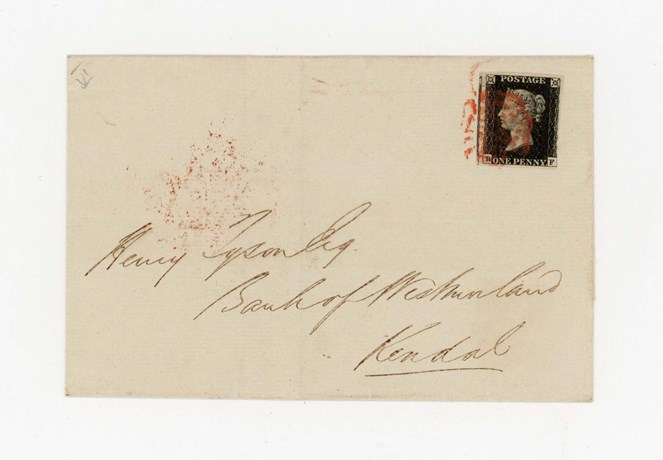 VI
POSTAGE
ONE PENNY
Henry Tyson Esq.
Bank of Westmorland
Kendal